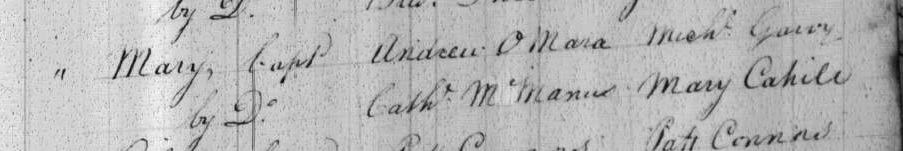 by Do.
" Mary, Bapt Andrew O Mara Michl. Garvy
by Do. Cathe. McManus Mary Cahill
Patt Connors